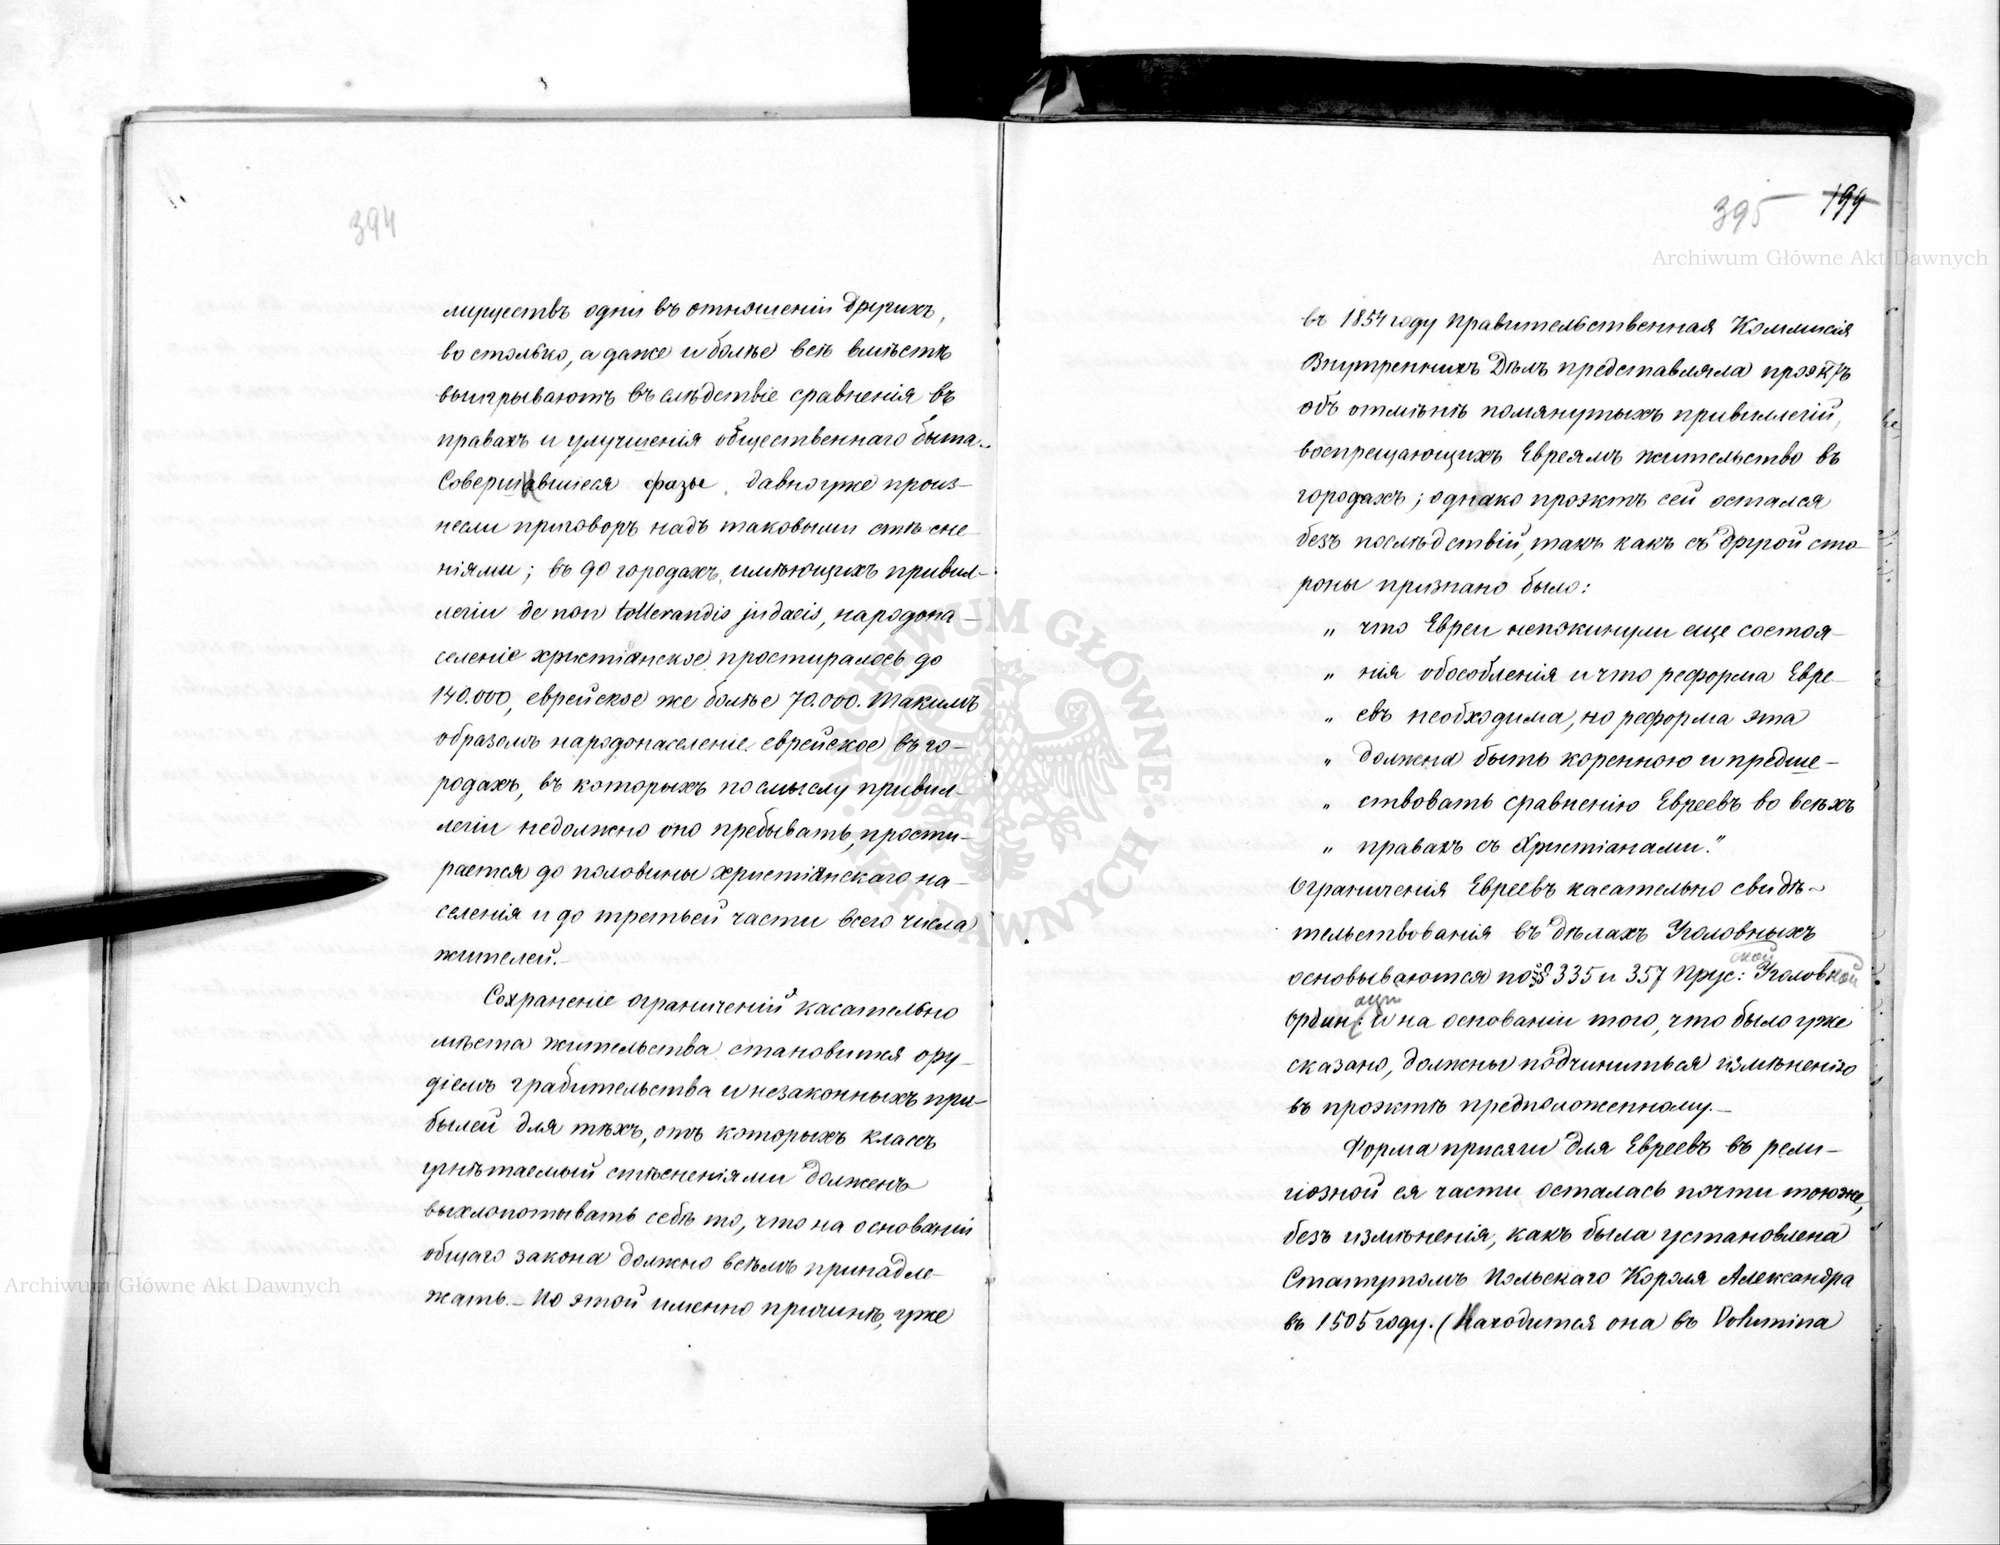 394
муществъ одни въ отношеніи другихъ,
во столько, а даже и болѣе всѣ вмѣстѣ
выигрываютъ въ слѣдствіе сравненія въ
правахъ и улучшенія общественнаго быта.
Совершившіеся фазы давно уже произ-
несли приговоръ надъ таковыми стѣсне-
ніями; въ 90 городахъ, имѣющихъ привил-
легіи de non tollerandis judaeis, народона-
селеніе христіанское простиралось до
140.000, еврейское же болѣе 70.000. Такимъ
образомъ народонаселеніе еврейское въ го-
родахъ, въ которыхъ по смыслу привил-
легіи недолжно оно пребывать, прости-
рается до половины христіанскаго на-
селенія и до третьей части всего числа
жителей.—
Сохраненіе ограниченій касательно
мѣста жительства становится ору-
діемъ грабительства и незаконныхъ при-
былей для тѣхъ, отъ которыхъ классъ
угнѣтаемый стѣсненіями долженъ
выхлопотывать себѣ то, что на основаніи
общаго закона должно всѣмъ принадле-
жать.— По этой именно причинѣ, уже
395 199
въ 1854 году Правительственная Коммисія
Внутреннихъ Дѣлъ представляла проэктъ
объ отмѣнѣ помянутыхъ привиллегій,
воспрещающихъ Евреямъ жительство въ
городахъ; однако проэктъ сей остался
безъ послѣдствій, такъ какъ съ другой сто-
роны признано было:
„ что Евреи непокинули еще состоя-
„ нія обособленія и что реформа Евре-
„ евъ необходима, но реформа эта
„ должна быть коренною и предше-
„ ствовать сравненію Евреевъ во всѣхъ
„ правахъ съ Христіанами."
Ограниченія Евреевъ касательно свидѣ-
тельствованія въ дѣлахъ Уголовныхъ
основываются по §§ 335 и 357 Прус: ской Уголовной
Ордин: аціи и на основаніи того, что было уже
сказано, должны подчиниться измѣненію
въ проэктѣ предположенному.—
Форма присяги для Евреевъ въ рели-
гіозной ея части осталась почти тою же,
безъ измѣненія, какъ была установлена
Статутомъ Польскаго Короля Александра
въ 1505 году. (Находится она въ Volumina
Archiwum Główne Akt Dawnych
Archiwum Główne Akt Dawnych
ARCHIWUM GŁÓWNE AKT DAWNYCH